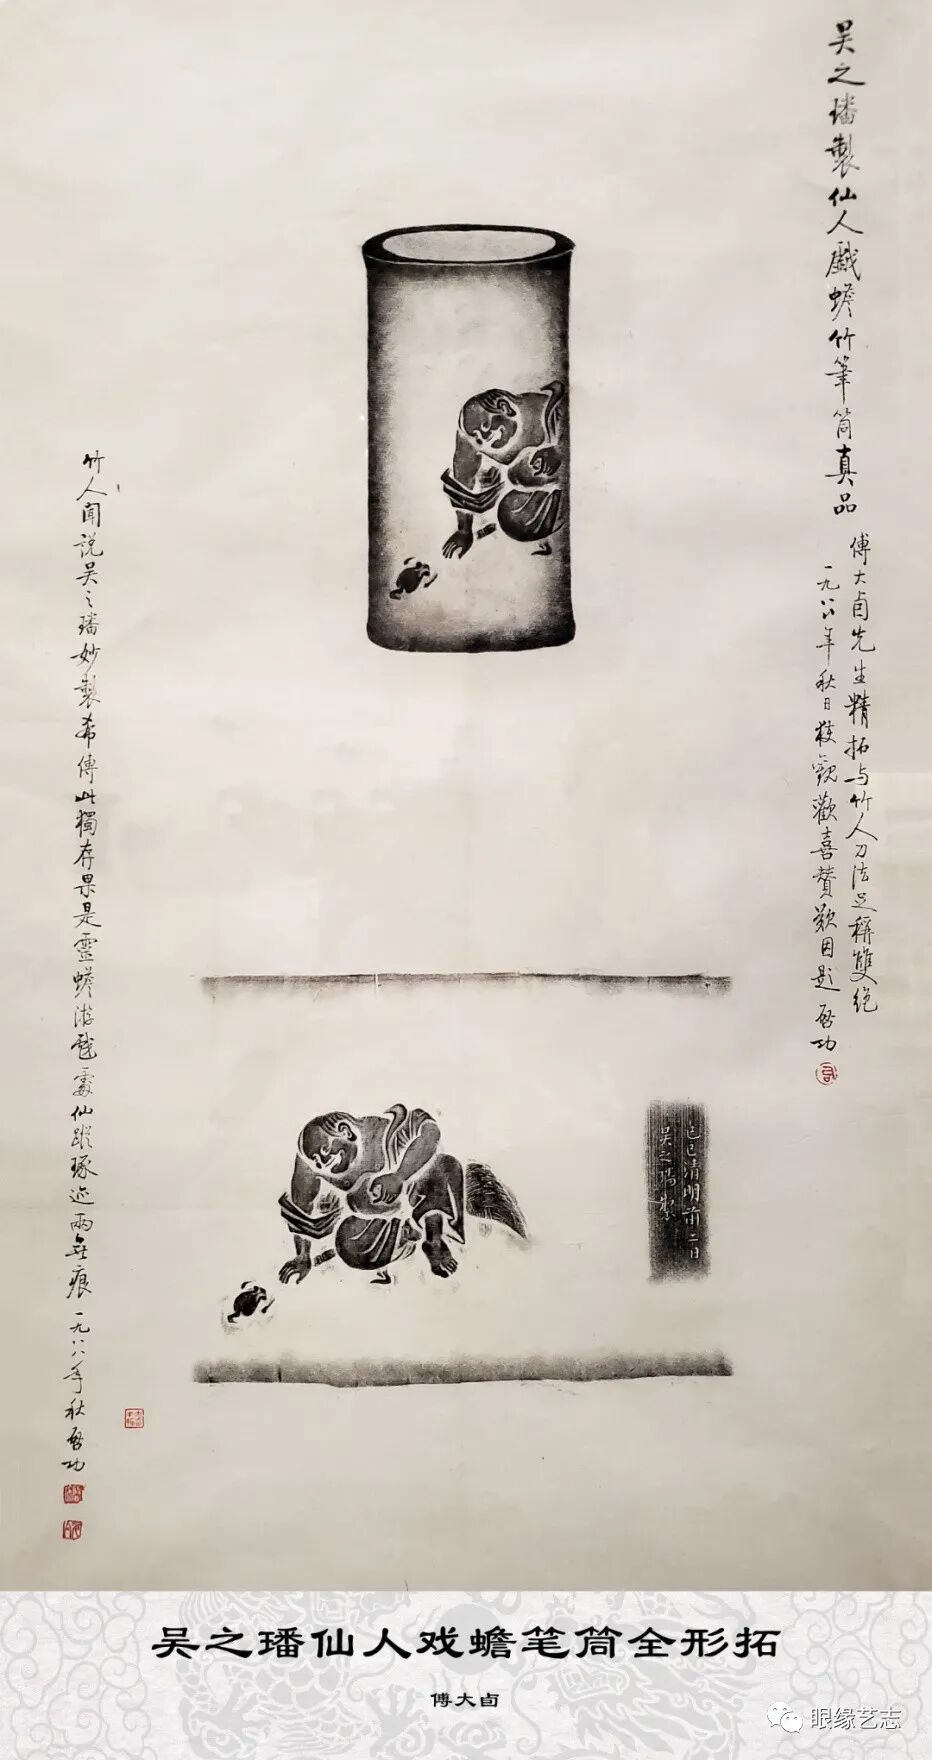 吴之璠製仙人戲蟾竹筆筒真品
傅大卣先生精拓与竹人刀法足稱雙絶
一九八八年秋日獲觀歡喜贊歎因題 启功
竹人聞說吴之璠妙製希傳此獨存果是靈蟾游戲處仙蹤琢迹兩無痕一九八八年秋启功
己巳清明前二日
吴之璠製
吴之璠仙人戏蟾笔筒全形拓
傅大卣
眼缘艺志